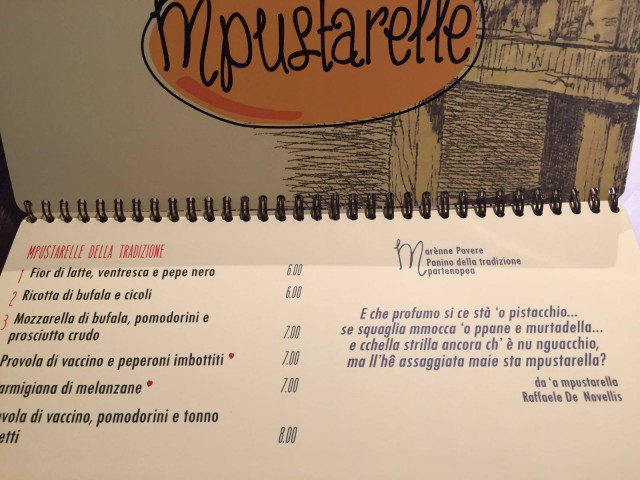 Mpustarelle
MPUSTARELLE DELLA TRADIZIONE
1 Fior di latte, ventresca e pepe nero 6.00
2 Ricotta di bufala e cicoli 6.00
3 Mozzarella di bufala, pomodorini e
prosciutto crudo 7.00
Provola di vaccino e peperoni imbottiti 7.00
armigiana di melanzane 7.00
vola di vaccino, pomodorini e tonno
etti 8.00
Marènne Povere
Panino della tradizione
partenopea
E che profumo si ce stà 'o pistacchio...
se squaglia mmocca 'o ppane e murtadella...
e cchella strilla ancora ch' è nu nguacchio,
ma ll'hê assaggiata maie sta mpustarella?
da 'a mpustarella
Raffaele De Novellis